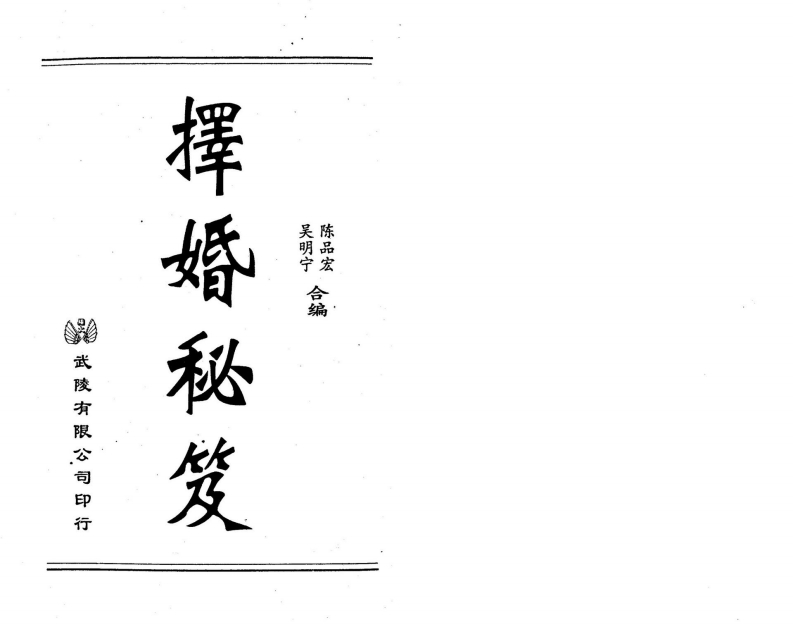 陈品宏
吴明宁
合编
擇婚秘笈
武陵有限公司印行